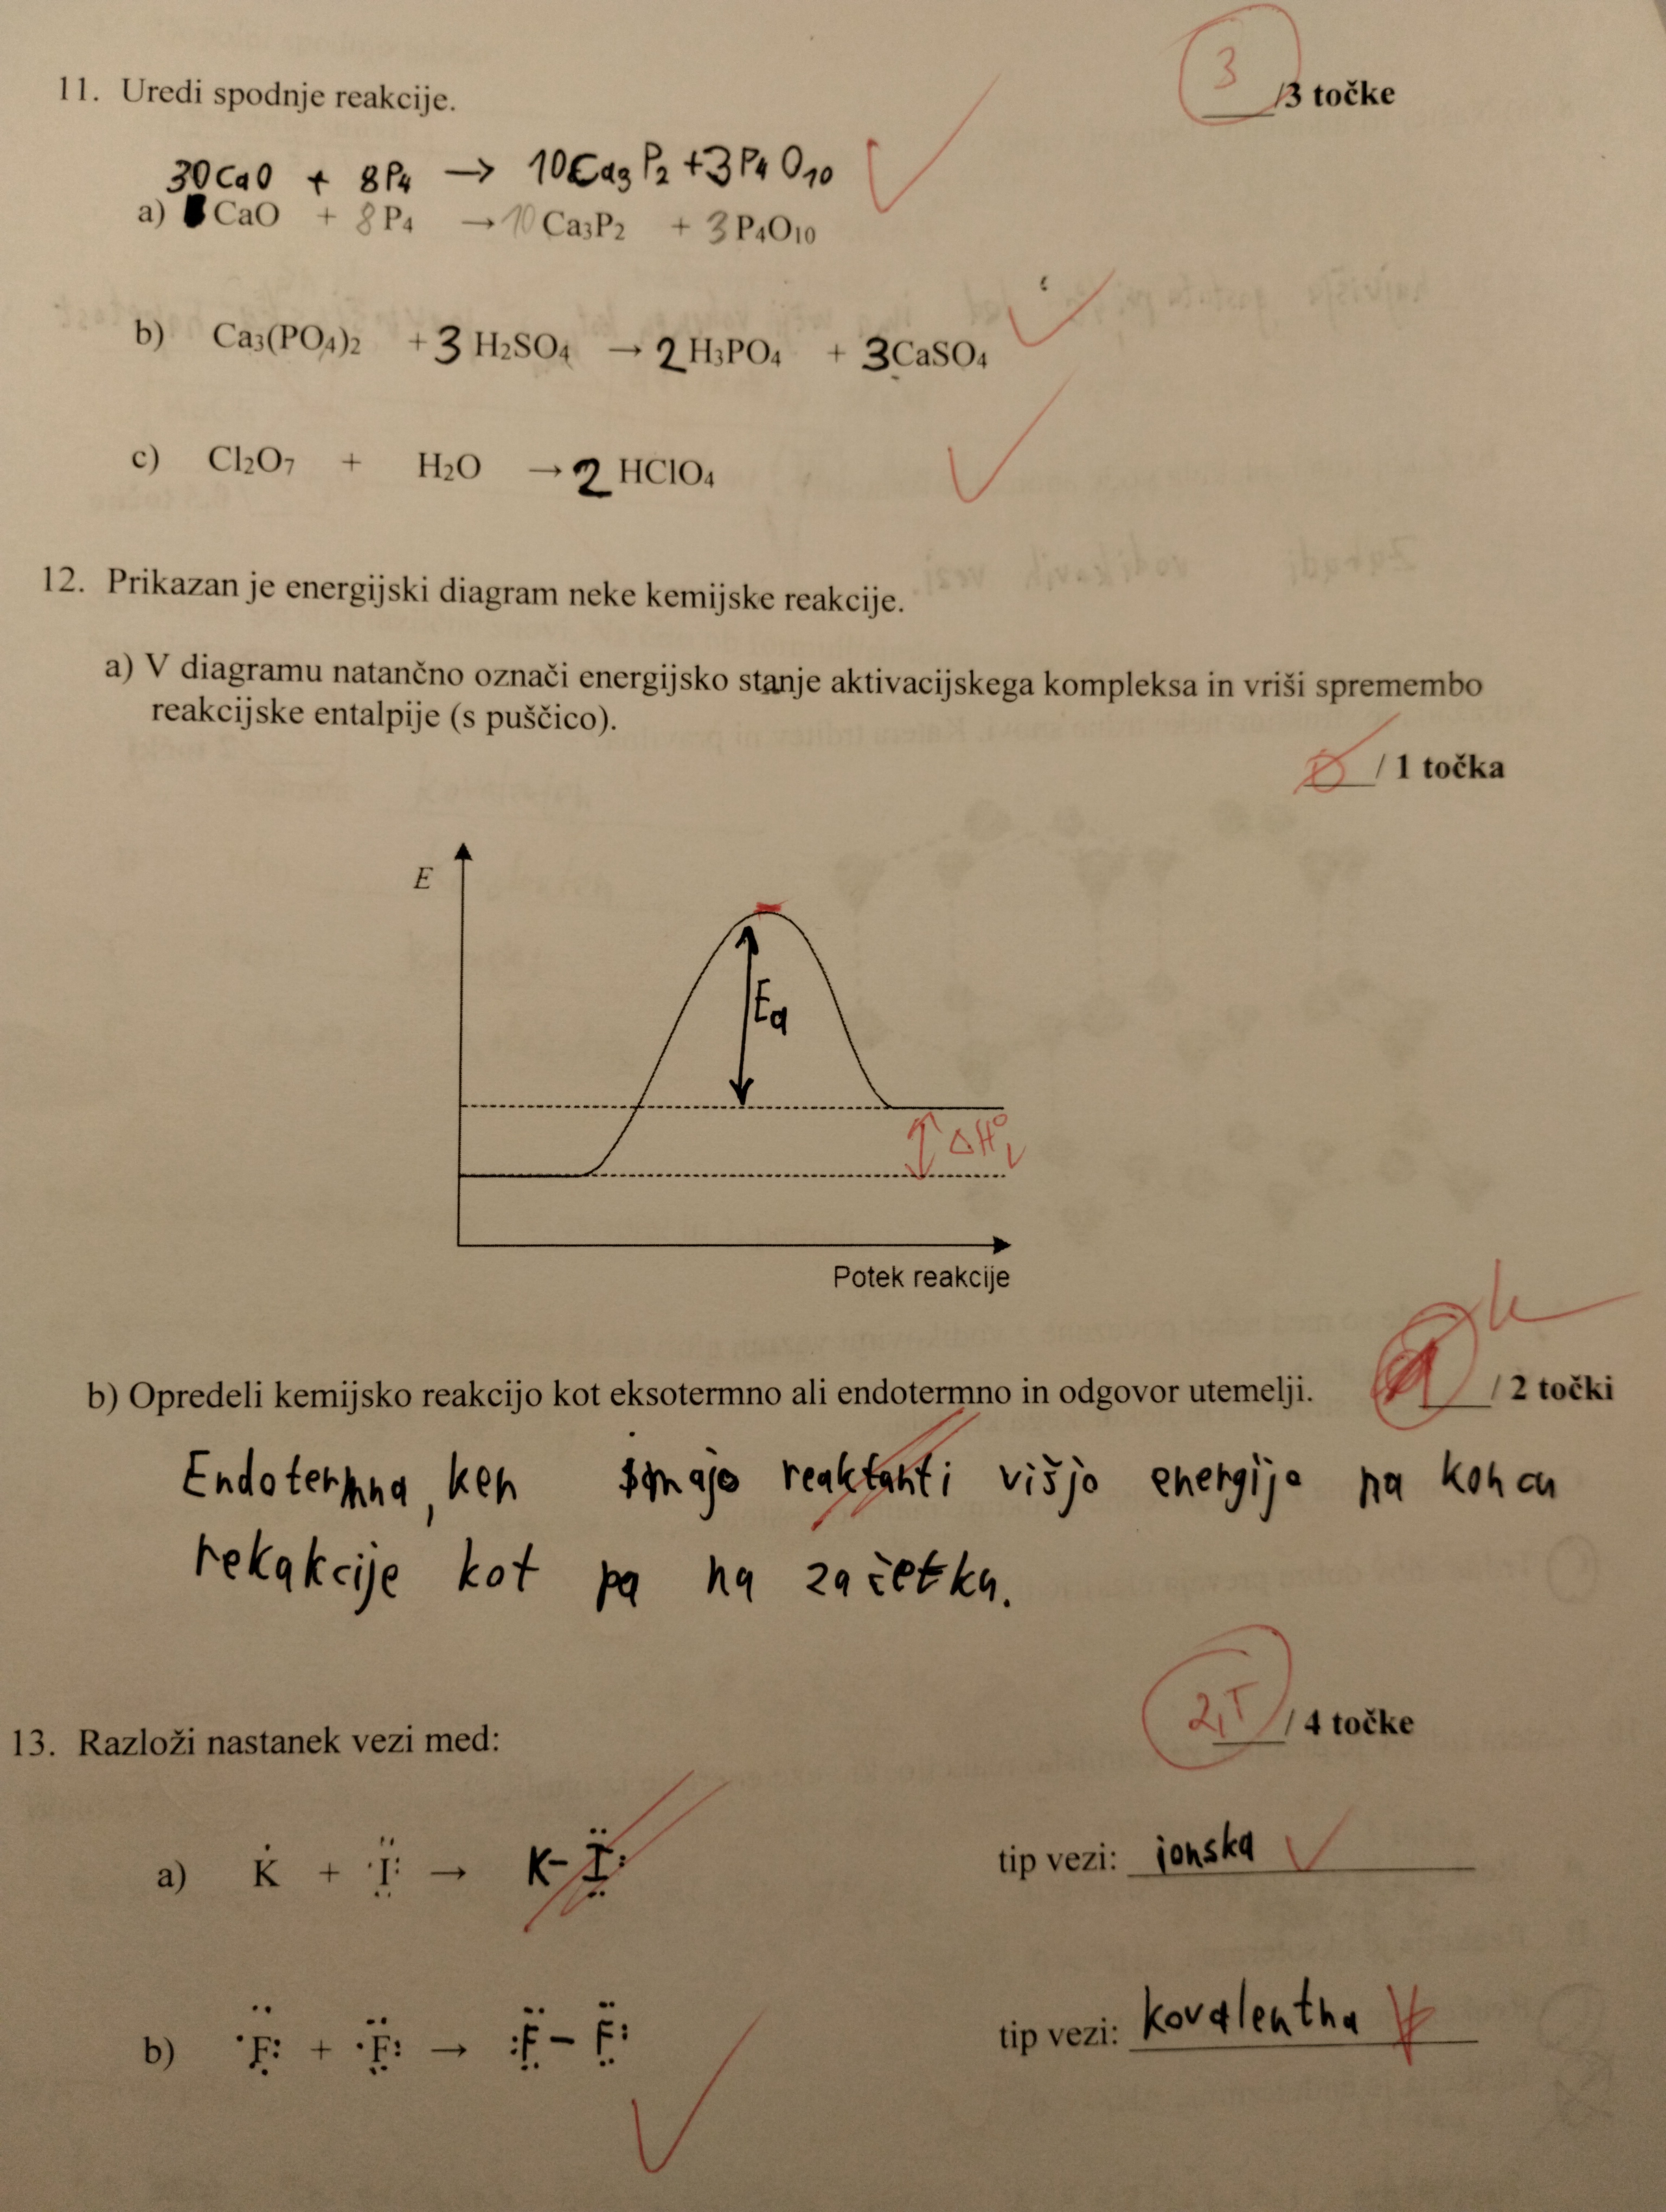 11. Uredi spodnje reakcije.
3
___/3 točke
30CaO + 8P4 → 10Ca3P2 + 3P4O10
a) CaO + 8P4 → 10Ca3P2 + 3P4O10
b) Ca3(PO4)2 + 3H2SO4 → 2H3PO4 + 3CaSO4
c) Cl2O7 + H2O → 2HClO4
12. Prikazan je energijski diagram neke kemijske reakcije.
a) V diagramu natančno označi energijsko stanje aktivacijskega kompleksa in vriši spremembo
reakcijske entalpije (s puščico).
___/ 1 točka
E
Ea
ΔH°
Potek reakcije
b) Opredeli kemijsko reakcijo kot eksotermno ali endotermno in odgovor utemelji.
___/ 2 točki
Endotermna, ker imajo reaktanti višjo energijo na koncu
rekakcije kot pa na začetku.
13. Razloži nastanek vezi med:
___/ 4 točke
a) K + I → K–I
tip vezi: ionska
b) F + F → F – F
tip vezi: kovalentna